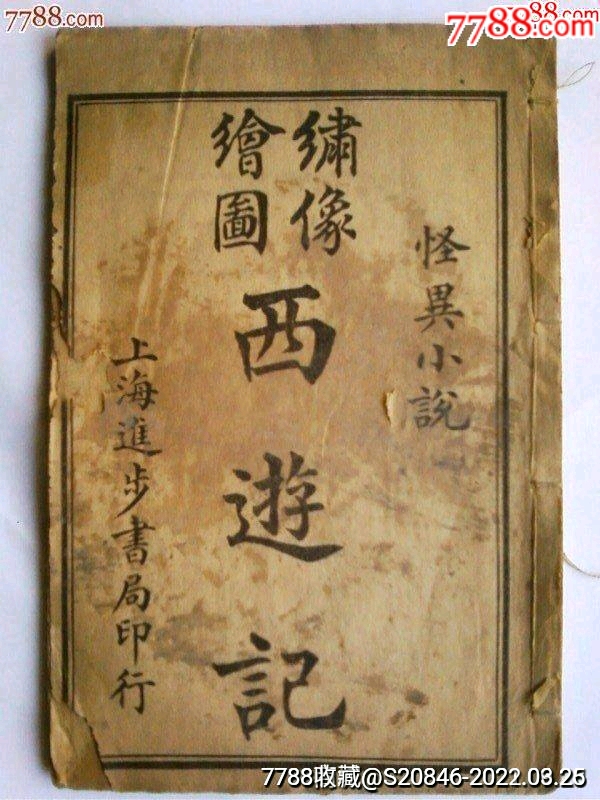 7788.com
7788.com
7788.com
怪異小說
繡像
繪圖
西遊記
上海進步書局印行
7788收藏@S20846-2022.03.25